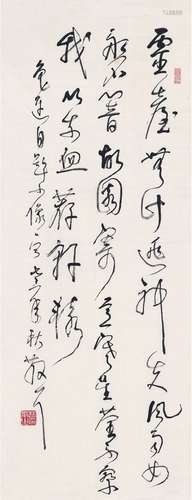 靈臺無計逃神矢風雨如
磐闇故園寄意寒星荃不察
我以我血薦軒轅
魯迅自題小像 秋散耳